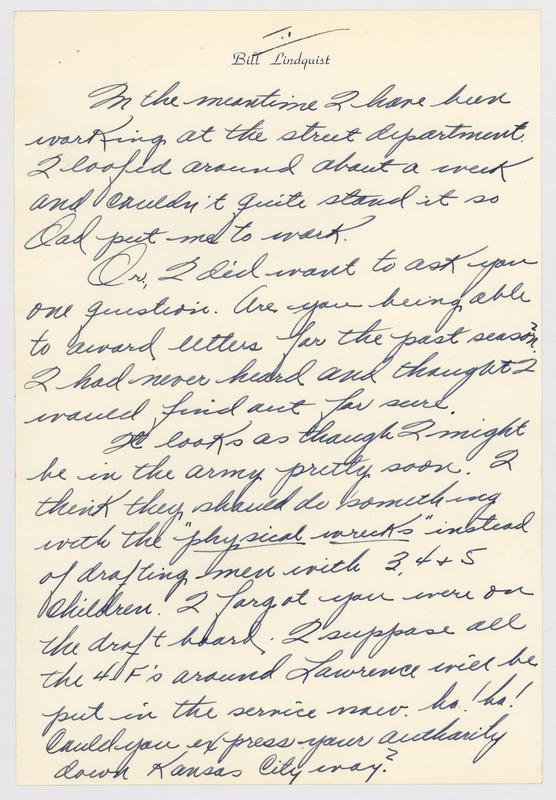 Bill Lindquist
In the meantime I have been
working at the street department.
I loafed around about a week
and couldn't quite stand it so
Dad put me to work.
Dr, I did want to ask you
one question. Are you being able
to award letters for the past season?
I had never heard and thought I
would find out for sure.
It looks as though I might
be in the army pretty soon. I
think they should do something
with the "physical wrecks" instead
of drafting men with 3, 4 + 5
children. I forgot you were on
the draft board. I suppose all
the 4 F's around Lawrence will be
put in the service now. ha! ha!
Could you express your authority
down Kansas City way?